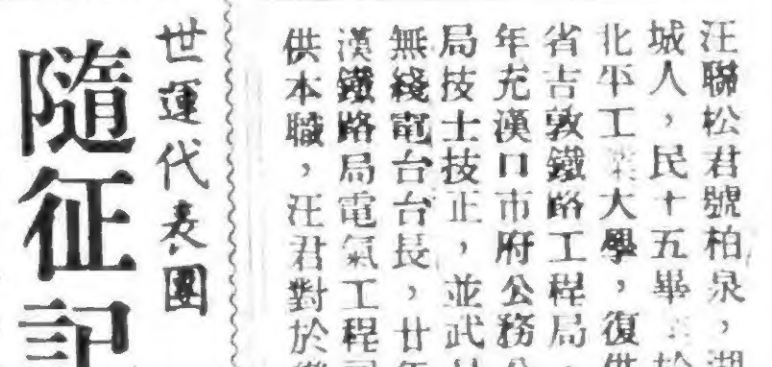 汪聯松君號柏泉，湖
城人，民十五畢於
北平工業大學，復供
省吉敦鐵路工程局，
年充漢口市府公務
局技士技正，並武
無綫電台台長，廿年
漢鐵路局電氣工程
供本職，汪君對於
世運代表團
隨征記